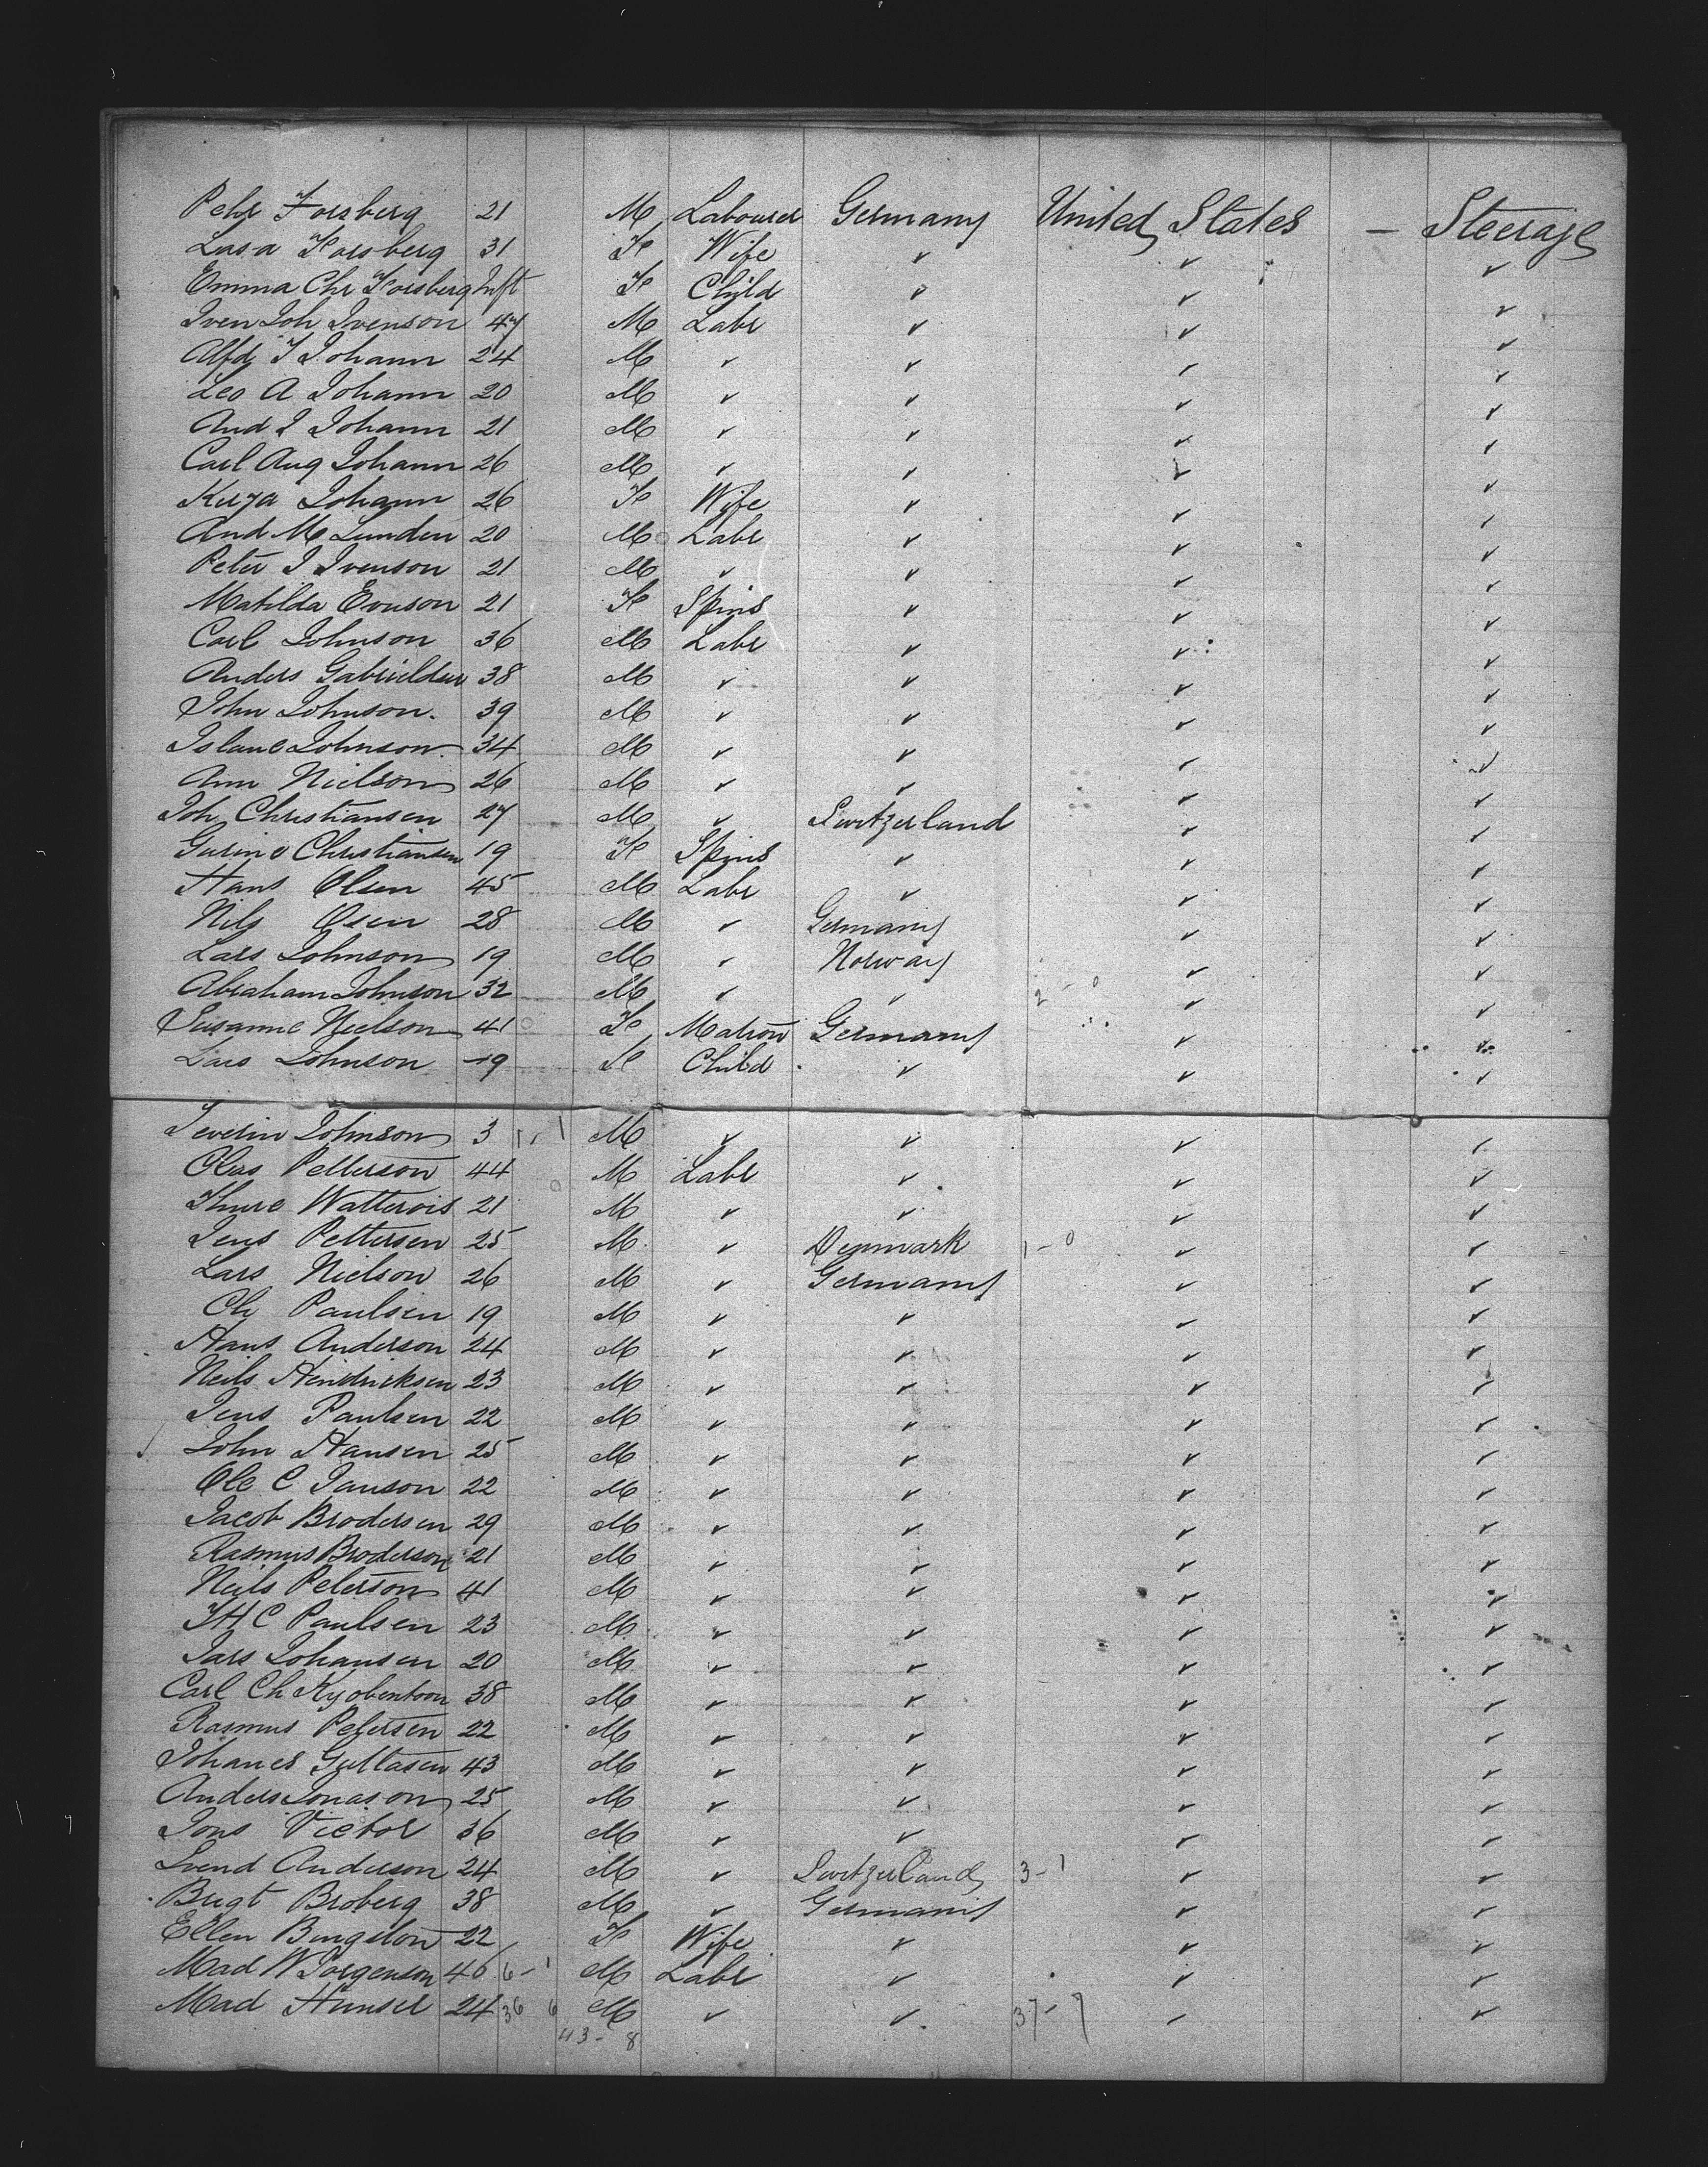 Pehr Forsberg 21 M Labourer Germany United States — Steerage
Lasa Forsberg 31 F Wife ✓ ✓ ✓
Emma Chr Forsberg Inft F Child ✓ ✓ ✓
Iven Joh Ivenson 47 M Labr ✓ ✓ ✓
Alfd J Johann 24 M ✓ ✓ ✓ ✓
Leo A Johann 20 M ✓ ✓ ✓ ✓
And J Johann 21 M ✓ ✓ ✓ ✓
Carl Aug Johann 26 M ✓ ✓ ✓ ✓
Johann 26 F Wife ✓ ✓ ✓
And M Lunden 20 M Labr ✓ ✓ ✓
Peter J Ivenson 21 M ✓ ✓ ✓ ✓
Matilda Evnson 21 F Spins ✓ ✓ ✓
Carl Johnson 36 M Labr ✓ ✓ ✓
Anders 38 M ✓ ✓ ✓ ✓
John Johnson. 39 M ✓ ✓ ✓ ✓
Johnson 34 M ✓ ✓ ✓ ✓
Ann Nielson 26 M ✓ ✓ ✓ ✓
Joh Christiansen 27 M ✓ Switzerland ✓ ✓
Gurine Christiansen 19 F Spins ✓ ✓ ✓
Hans Olsen 45 M Labr ✓ ✓ ✓
Nils Osen 28 M ✓ Germany ✓ ✓
Lars Johnson 19 M ✓ Norway ✓ ✓
Abraham Johnson 32 M ✓ ✓ 2 - 0 ✓ ✓
Susanne Nielson 41 F Matron Germany ✓ ✓
Johnson 19 F Child ✓ ✓ ✓
Severin Johnson 3 1, 1 M ✓ ✓ ✓ ✓
Petterson 44 M Labr ✓ ✓ ✓
Thure Watterois 21 M ✓ ✓ ✓ ✓
Jens Pettersen 25 M ✓ Denmark 1 - 0 ✓ ✓
Lars Nielson 26 M ✓ Germany ✓ ✓
Ch Paulsen 19 M ✓ ✓ ✓ ✓
Hans Anderson 24 M ✓ ✓ ✓ ✓
Neils Hendricksen 23 M ✓ ✓ ✓ ✓
Jens Paulsen 22 M ✓ ✓ ✓ ✓
John Hansen 25 M ✓ ✓ ✓ ✓
Ole C Janson 22 M ✓ ✓ ✓ ✓
Jacob Brodersen 29 M ✓ ✓ ✓ ✓
Rasmus Broderson 21 M ✓ ✓ ✓ ✓
Neils Peterson 41 M ✓ ✓ ✓ ✓
H C Paulsen 23 M ✓ ✓ ✓ ✓
Lars Johansen 20 M ✓ ✓ ✓ ✓
Carl Ch Kyobentoon 38 M ✓ ✓ ✓ ✓
Rasmus Petersen 22 M ✓ ✓ ✓ ✓
Johanes 43 M ✓ ✓ ✓ ✓
Anders Jonason 25 M ✓ ✓ ✓ ✓
Jons Victor 36 M ✓ ✓ ✓ ✓
Svend Anderson 24 M ✓ Switzerland 3-1 ✓ ✓
Bugt Broberg 38 M ✓ Germany ✓ ✓
Ellen Bengston 22 F Wife ✓ ✓ ✓
Mad W Jorgenson 46 6-1 M Labr ✓ ✓ ✓
Mad Hunsel 24 36 6 M ✓ ✓ 37-7 ✓ ✓
43 - 8